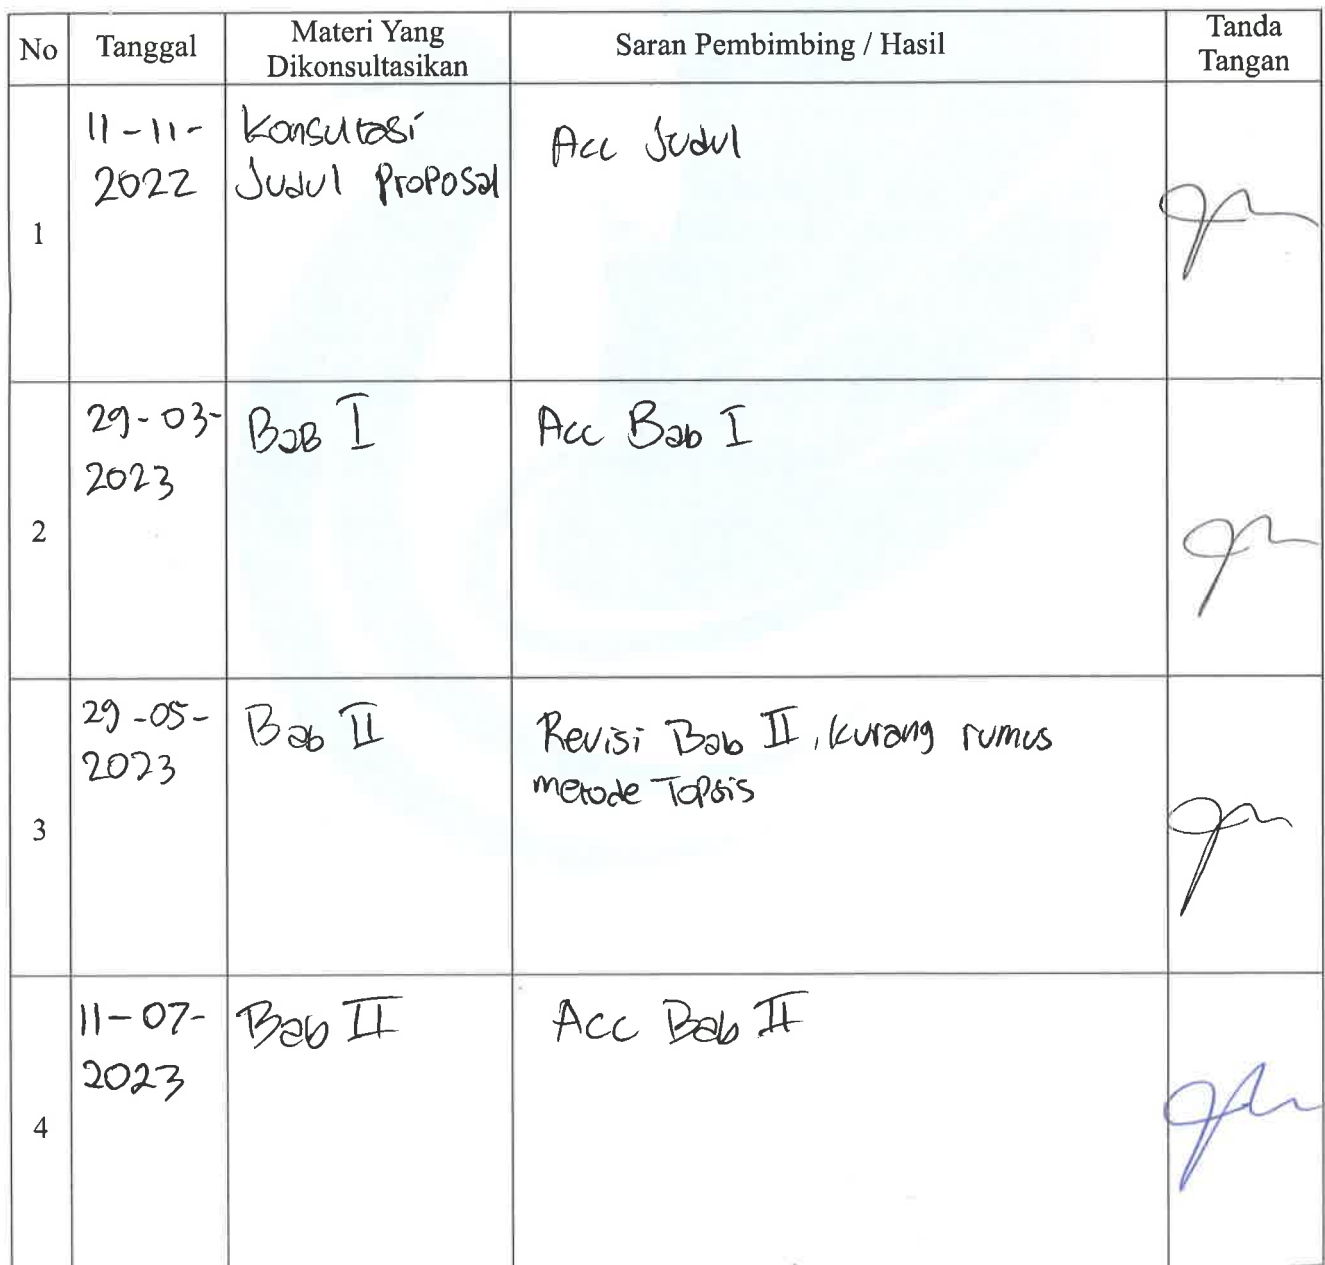 No
Tanggal
Materi Yang
Dikonsultasikan
Saran Pembimbing / Hasil
Tanda
Tangan
1
11-11-
2022
Konsultasi
Judul Proposal
Acc Judul
2
29-03-
2023
BaB I
Acc Bab I
3
29-05-
2023
Bab II
Revisi Bab II, kurang rumus
metode Topsis
4
11-07-
2023
Bab II
Acc Bab II